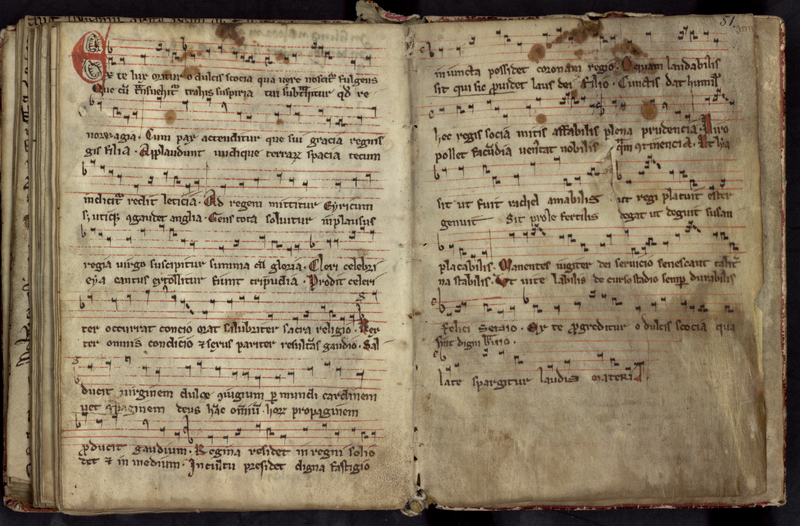 51
Ex te lux oritur o dulcis scocia qua vere noscitur fulgens
norwagia. Cum par accenditur que sui gracia regnis
gis filia. Applaudunt undique terrarum spacia tecum
indicitur redit leticia. Ad regem mittitur Eyricum
gaudet anglia. Gens tota solvitur in plausus
regia virgo suscipitur summa cum gloria. Cleri celebri
cantus extollitur fiunt tripudia. Prodit celeri
ter occurrat concio orat salubriter sacra religio. Ker
ter omnis condicio et serus pariter resultans gaudio. Sal
ducit virginem dulce coniugium per mundi cardinem
deus hanc omnium. horum propaginem
producit gaudium. Regina residet in regni solio
det et in medium. Incultu presidet digna fastigio
iniuncta possidet coronam regio. O quam laudabilis
sit qui sic providet laus dei filio. Cunctis dat humil
hec regis socia mitis affabilis plena prudencia. Viro
pollet facundia nobilis
sit ut fuit rachel amabilis ut regi placuit ester
genuit Sit prole fertilis degat ut deguit susan
placabilis. Manentes iugiter dei servicio senescant
na stabilis. Ut vite labilis de curso stadio semper durabilis
felici Ex te progreditur o dulcis scocia qua
sint digni
late spargitur laudis materia.